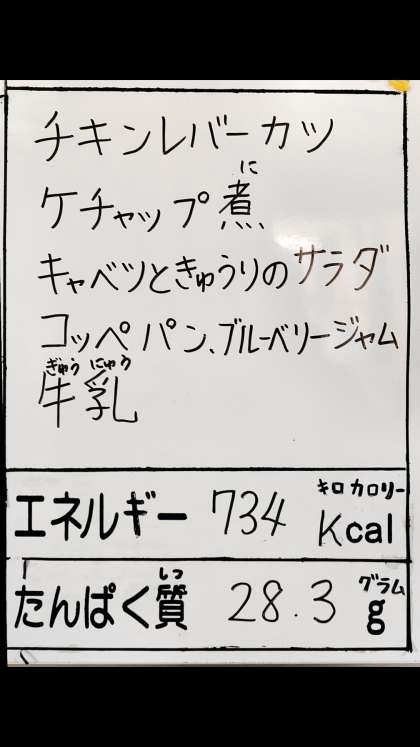 チキンレバーカツ
に
ケチャップ煮
キャベツときゅうりのサラダ
コッペパン、ブルーベリージャム
ぎゅう にゅう
牛乳
キロ カロリー
エネルギー 734 Kcal
しつ グラム
たんぱく質 28.3 g